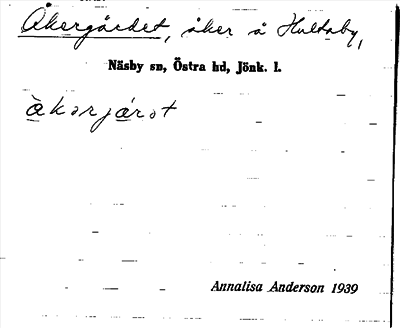 Åkergärdet, åker å Hultaby,
Näsby sn, Östra hd, Jönk. l.
àkərjárət
Annalisa Anderson 1939